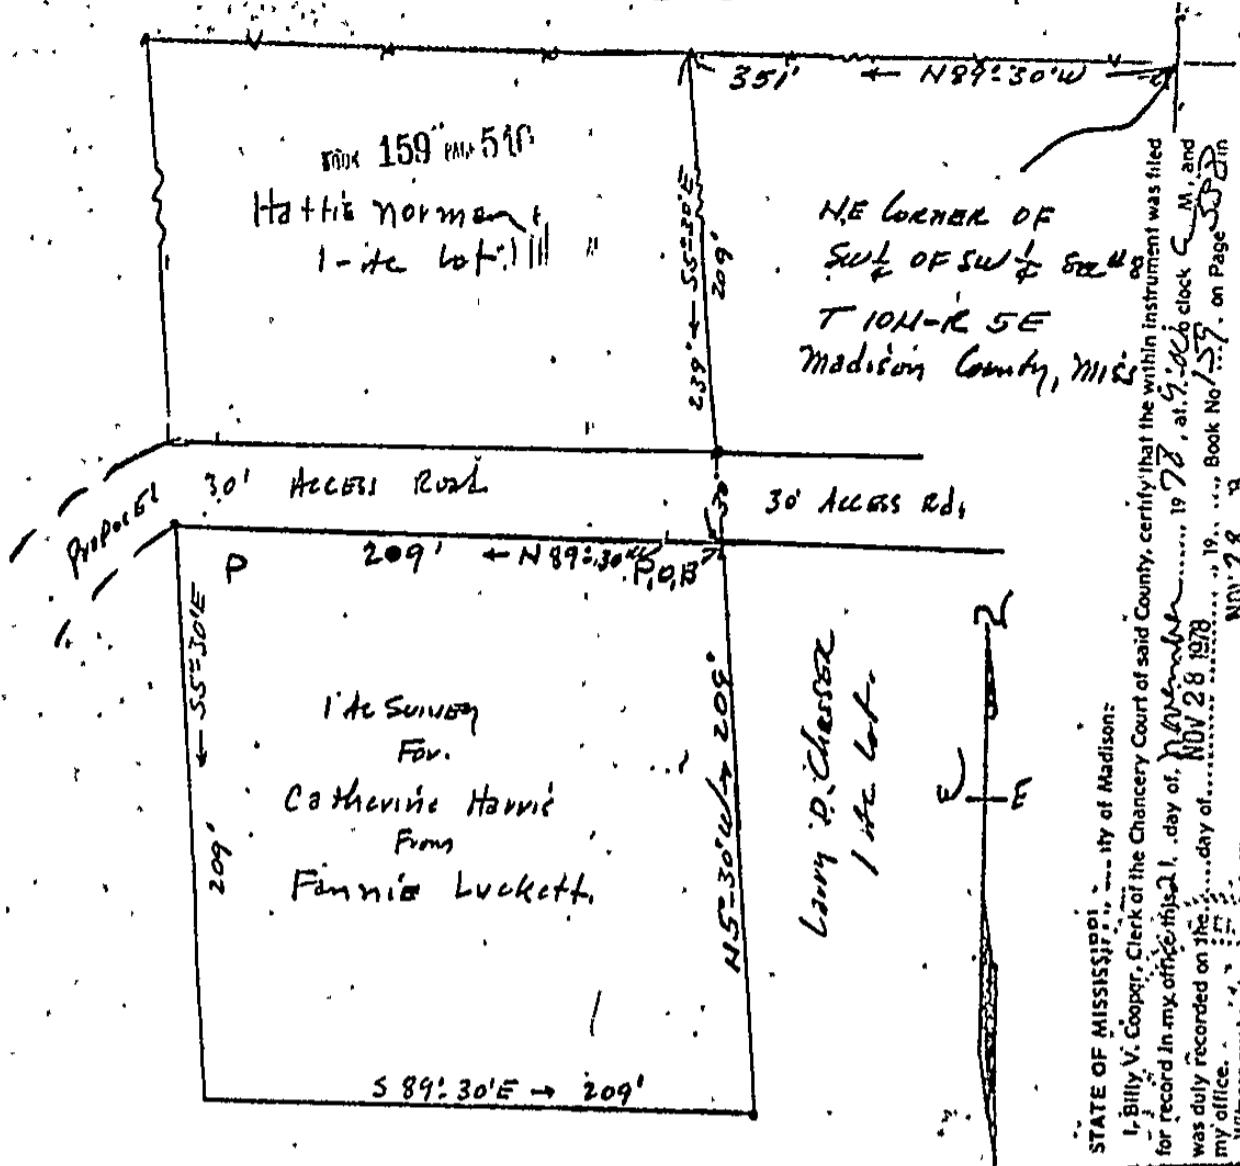 351' ← N89°30'W
BOOK 159 PAGE
Hattie Norman
1-Ac Lot
S5°30'E
239' ←
209'
NE CORNER OF
SW¼ OF SW¼ Sec
T 10N-R 5E
Madison County, Miss
PROPOSED
30' ACCESS ROAD
30'
30' ACCESS Rd.
P
209' ← N89°30'W
P.O.B
← S5°30'E
209'
1 Ac SURVEY
For.
Catherine Harris
From
Fannie Luckett.
N5°30'W → 209'
Larry D. Chesser
1 Ac Lot.
S 89°30'E → 209'
N
W E
STATE OF MISSISSIPPI, County of Madison:
I, Billy V. Cooper, Clerk of the Chancery Court of said County, certify that the within instrument was filed
for record in my office this 21 day of November 1978, at 9:00 o'clock A M, and
was duly recorded on the day of NOV 28 1978, 19...., Book No 159 on Page in
my office.
NOV 28